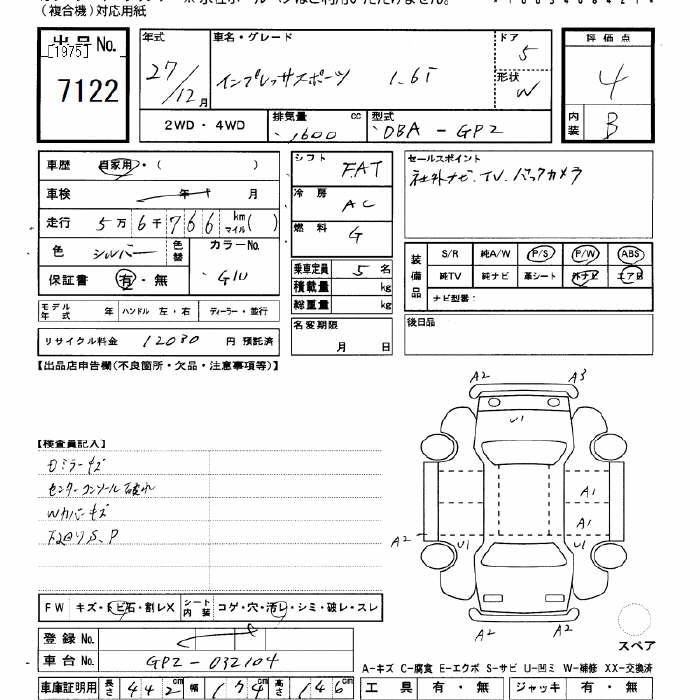 (複合機)対応用紙
出品No. [1975]
7122
年式 車名・グレード ドア 評価点
27/12月 インプレッサスポーツ 1.6i 5 形状 W 4
2WD・4WD 排気量 1600 cc 型式 DBA-GP2 内装 B
車歴 自家用・( )
車検 年 月
走行 5万6千766 km マイル( )
色 シルバー 色替 カラーNo. G1U
保証書 有・無
モデル年式 年 ハンドル 左・右 ディーラー・並行
リサイクル料金 12030 円 預託済
シフト FAT
冷房 AC
燃料 G
乗車定員 5名
積載量 kg
総重量 kg
名変期限 月 日
セールスポイント
社外ナビ.TV.バックカメラ
装備品 S/R 純A/W P/S P/W ABS
純TV 純ナビ 革シート 外ナビ エアB
ナビ型番:
後日品
【出品店申告欄(不良箇所・欠品・注意事項等)】
【検査員記入】
Dミラーキズ
センターコンソール破れ
Wカバーキズ
下廻りS、P
A2 A3
U1
A1
A1
A2 U1 U1
A2 A2
スペア
FW キズ・トビ石・割レX シート内装 コゲ・穴・汚レ・シミ・破レ・スレ
登録No.
車台No. GP2-032104
A-キズ C-腐食 E-エクボ S-サビ U-凹ミ W-補修 XX-交換済
車庫証明用 長さ 442cm 幅 174cm 高さ 146cm 工具 有・無 ジャッキ 有・無